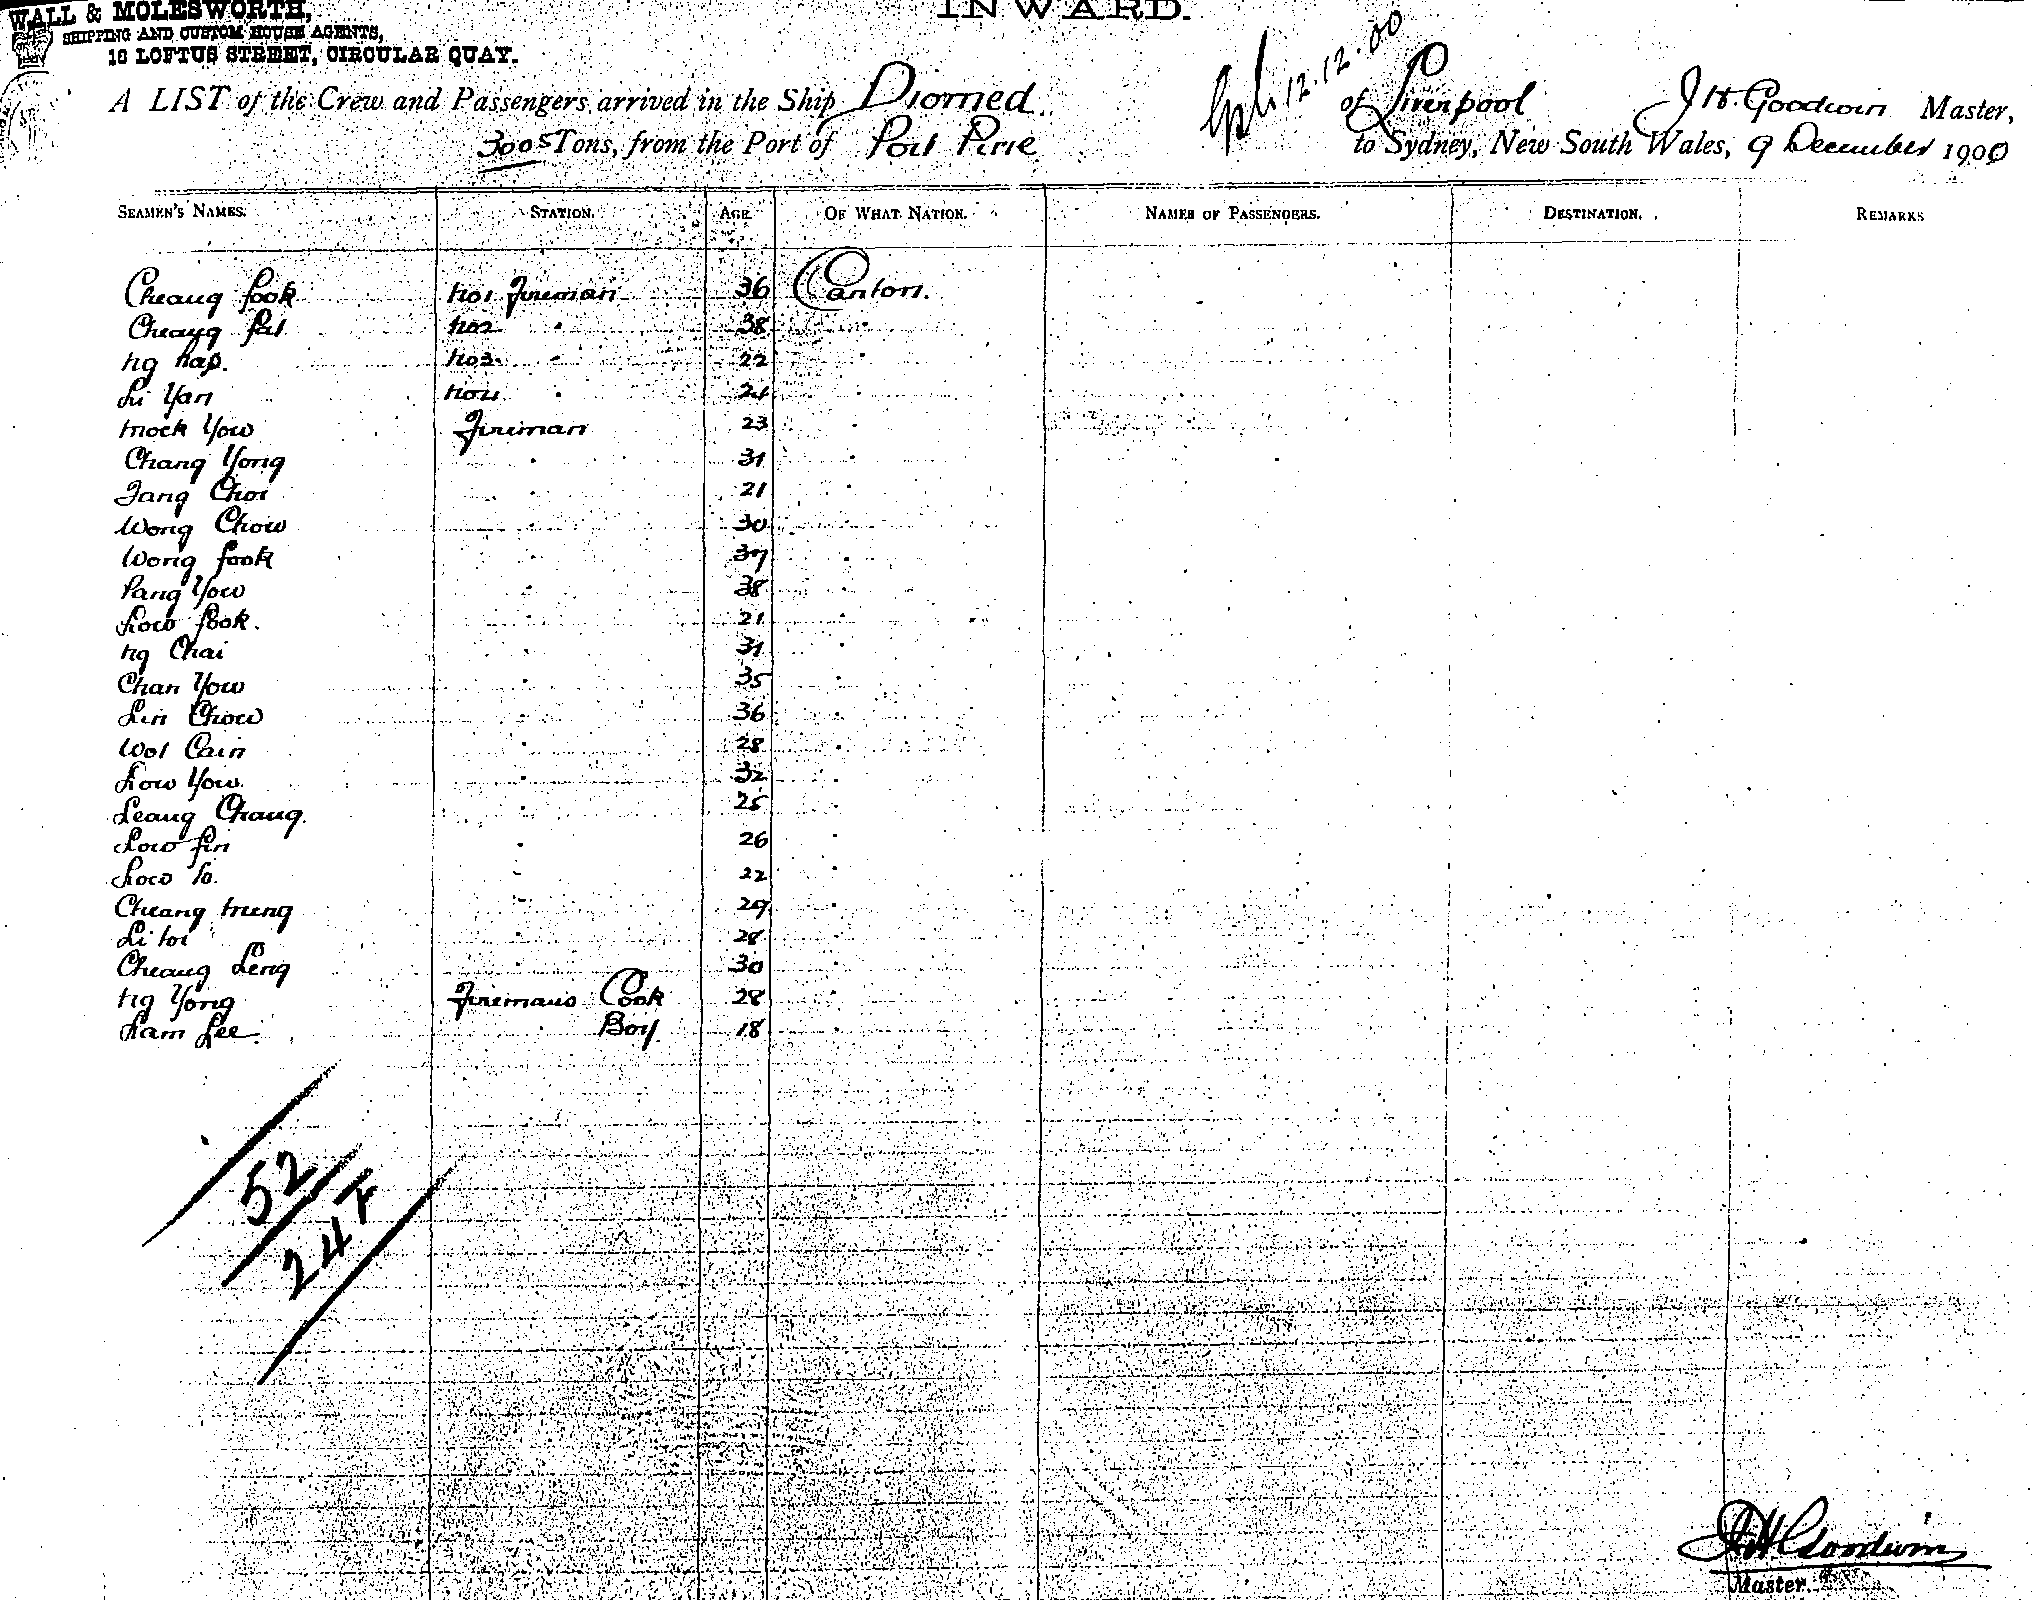 WALL & MOLESWORTH,
SHIPPING AND CUSTOM HOUSE AGENTS,
18 LOFTUS STREET, CIRCULAR QUAY.
INWARD.
12.12.00
A LIST of the Crew and Passengers arrived in the Ship Diomed of Liverpool J H Goodwin Master,
3005 Tons, from the Port of Port Pirie to Sydney, New South Wales, 9 December 1900
SEAMEN'S NAMES. STATION. AGE. OF WHAT NATION. NAMES OF PASSENGERS. DESTINATION. REMARKS
Cheang Fook No1 Fireman 36 Canton.
Cheang Fat No2 " 38 "
Ng Hap. No3 " 22 "
Li Yan No4 " 24 "
Mock Yow Fireman 23 "
Chang Yong " 31 "
Tang Choi " 21 "
Wong Chow " 30 "
Wong Fook " 37 "
Pang Yow " 38 "
Low Fook. " 21 "
Ng Chai " 31 "
Chan Yow " 35 "
Lin Chow " 36 "
Wot Cain " 28 "
Low Yow " 32 "
Leang Chang. " 25 "
Low Fin " 26 "
Low 22 "
Cheang Mung " 29 "
Li " 28 "
Cheang Leng " 30 "
Ng Yong Firemans Cook 28 "
Lam Lee Boy 18 "
52
24 F
J H Goodwin
Master.